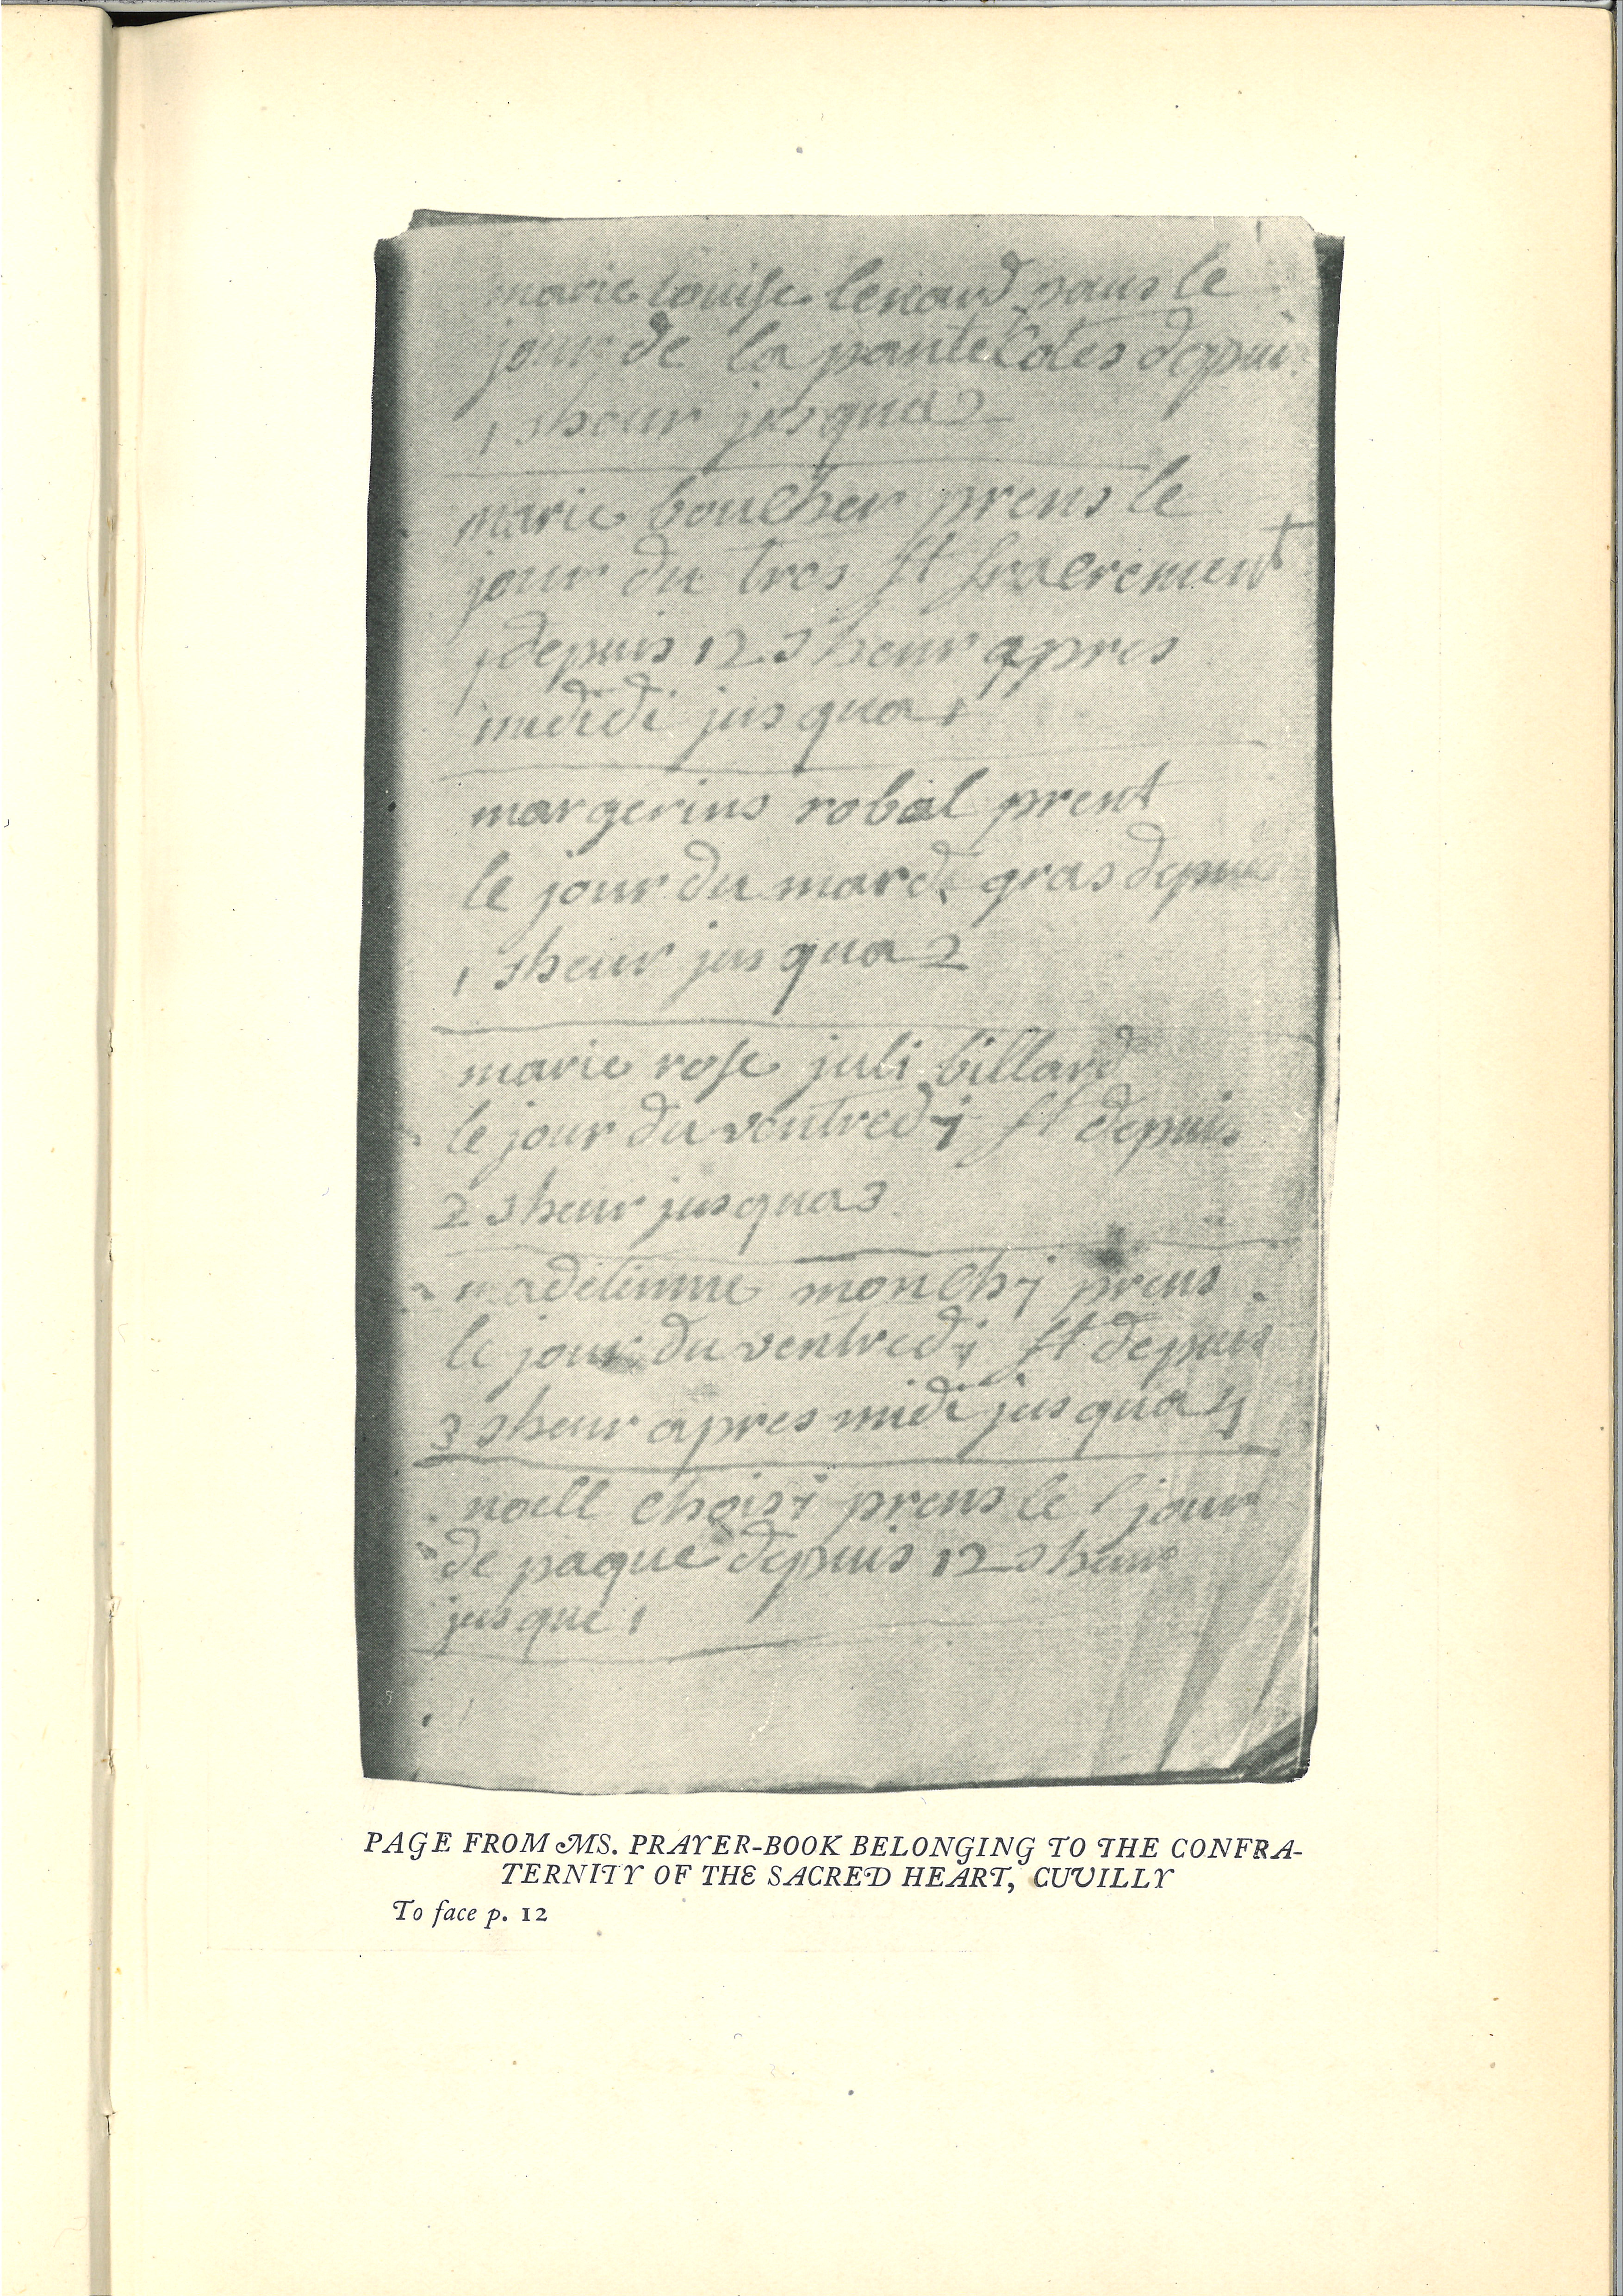 marie louise lenard prans le
jour de la pantecotes depuis
1 sheur jusqua 2
marie boucher prens le
jour du tres st sracrement
depuis 12 sheur apres
midi jusqua 1
margerins robal prent
le jour du mardi gras depuis
1 sheur jusqua 2
marie rose juli billard
le jour du ventredy st depuis
2 sheur jusqua 3
madelienne monchy prens
le jour du ventredy st depuis
3 sheur apres midi jusqua 4
noell choisy prens le jour
de paque depuis 12 sheur
jusque 1
PAGE FROM MS. PRAYER-BOOK BELONGING TO THE CONFRA-
TERNITY OF THE SACRED HEART, CUVILLY
To face p. 12